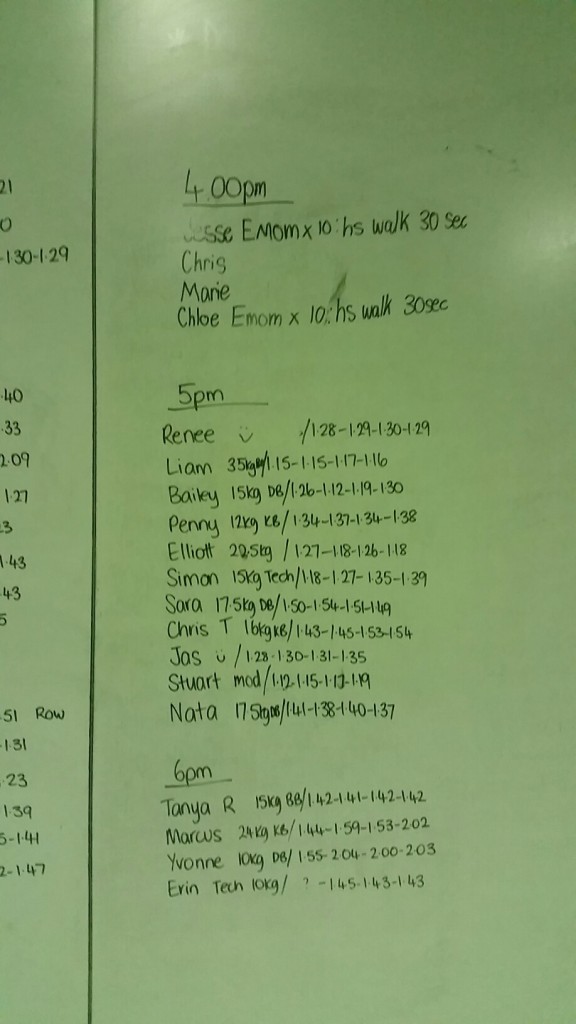 21
0
-1.30-1.29
.40
.33
2.09
1.27
3
1.43
.43
5
.51 Row
-1.31
.23
1.39
5-1.41
2-1.47
4.00pm
Jesse Emom x 10: hs walk 30 sec
Chris
Marie
Chloe Emom x 10: hs walk 30sec
5pm
Renee ü /1.28-1.29-1.30-1.29
Liam 35kg /1.15-1.15-1.17-1.16
Bailey 15kg DB/1.26-1.12-1.19-1.30
Penny 12kg KB/1.34-1.37-1.34-1.38
Elliott 22.5kg /1.27-1.18-1.26-1.18
Simon 15kg Tech/1.18-1.27-1.35-1.39
Sara 17.5kg DB/1.50-1.54-1.51-1.49
Chris T 16kg KB/1.43-1.45-1.53-1.54
Jas ü /1.28-1.30-1.31-1.35
Stuart mod/1.12-1.15-1.17-1.19
Nata 17.5kg DB/1.41-1.38-1.40-1.37
6pm
Tanya R 15kg BB/1.42-1.41-1.42-1.42
Marcus 24kg KB/1.44-1.59-1.53-2.02
Yvonne 10kg DB/1.55-2.04-2.00-2.03
Erin Tech 10kg/ ? -1.45-1.43-1.43